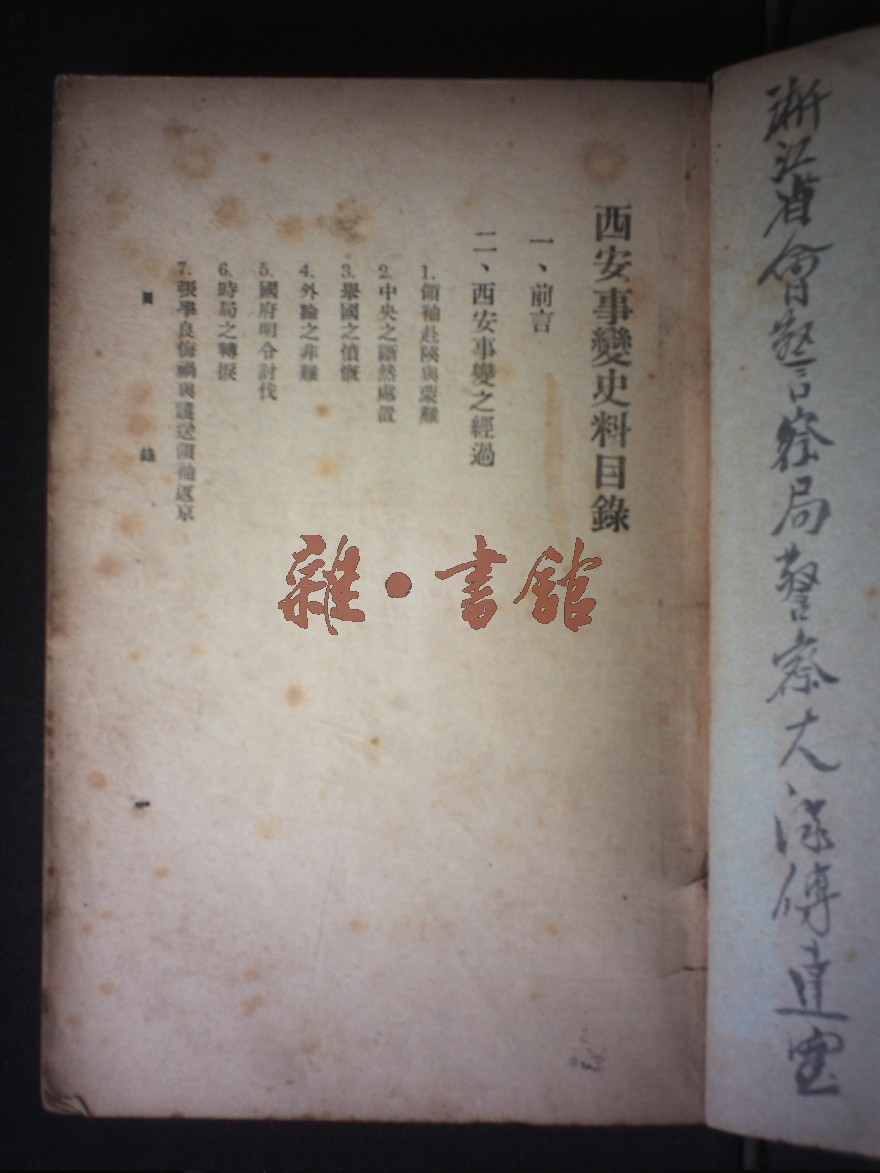 浙江省會警察局警察大隊傳達室
西安事變史料目錄
一、前言
二、西安事變之經過
1.領袖赴陝與蒙難
2.中央之斷然處置
3.舉國之憤慨
4.外論之非難
5.國府明令討伐
6.時局之轉捩
7.張學良悔禍與護送領袖返京
目錄
一
雜·書館